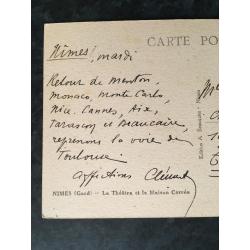 Nîmes, mardi
CARTE PO
Retour de Menton,
Monaco, Monte Carlo,
Nice, Cannes, Aix,
Tarascon et Beaucaire,
reprenons la voie de
Toulouse.
Affections Clément
NIMES (Gard) — Le Théâtre et la Maison Carrée